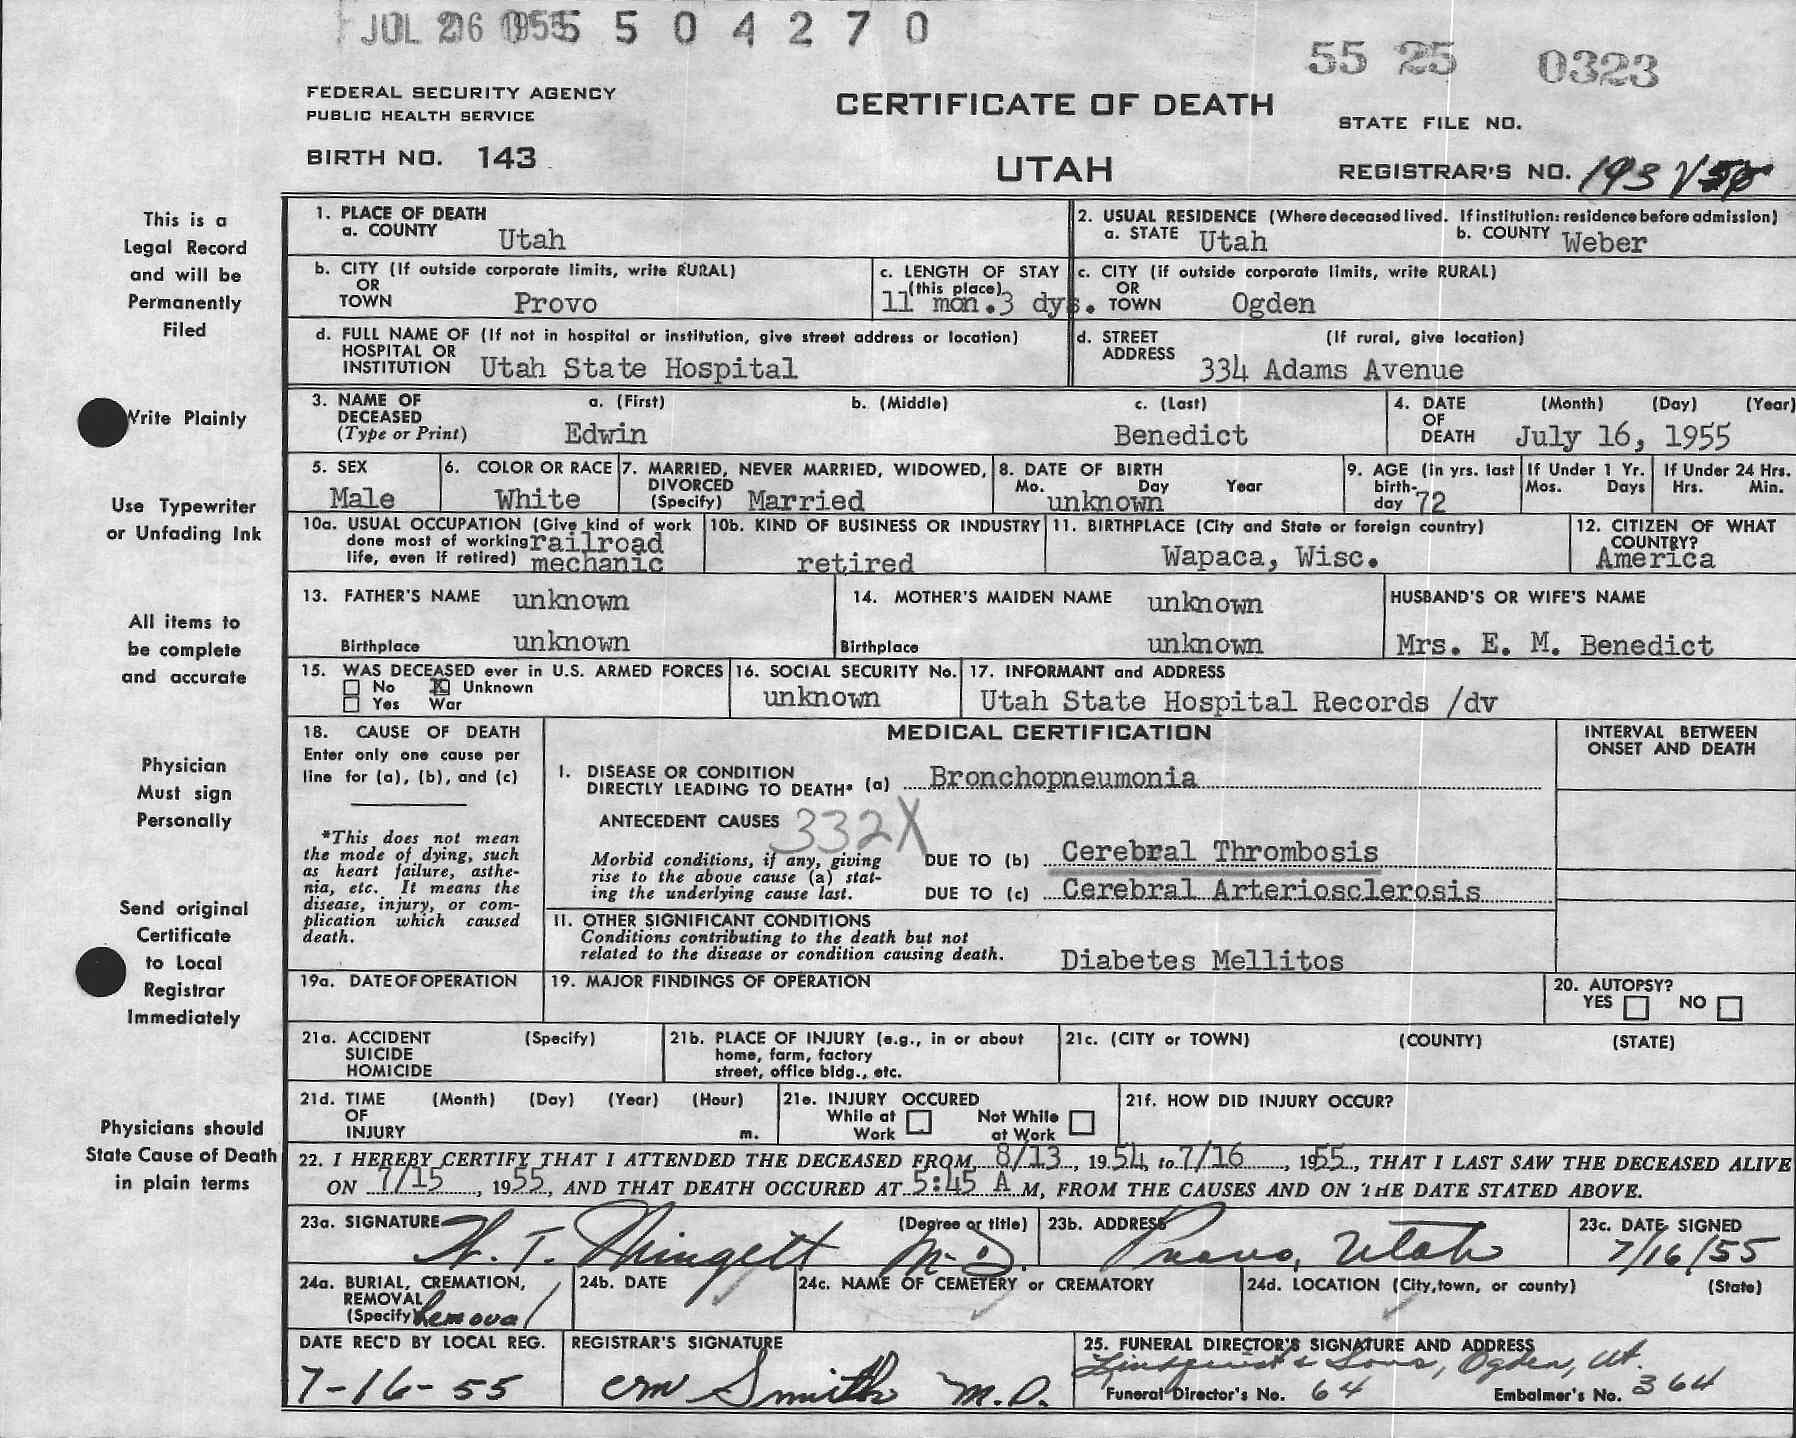 JUL 26 1955 5 0 4 2 7 0
55 25 0323
FEDERAL SECURITY AGENCY
PUBLIC HEALTH SERVICE
CERTIFICATE OF DEATH
STATE FILE NO.
BIRTH NO. 143
UTAH
REGISTRAR'S NO. 193
This is a
Legal Record
and will be
Permanently
Filed
Write Plainly
Use Typewriter
or Unfading Ink
All items to
be complete
and accurate
Physician
Must sign
Personally
Send original
Certificate
to Local
Registrar
Immediately
Physicians should
State Cause of Death
in plain terms
1. PLACE OF DEATH
a. COUNTY Utah
2. USUAL RESIDENCE (Where deceased lived. If institution: residence before admission)
a. STATE Utah b. COUNTY Weber
b. CITY (If outside corporate limits, write RURAL)
OR
TOWN Provo
c. LENGTH OF STAY
(this place)
11 mon.3 dys.
c. CITY (if outside corporate limits, write RURAL)
OR
TOWN Ogden
d. FULL NAME OF (If not in hospital or institution, give street address or location)
HOSPITAL OR
INSTITUTION Utah State Hospital
d. STREET (If rural, give location)
ADDRESS
334 Adams Avenue
3. NAME OF a. (First) b. (Middle) c. (Last)
DECEASED
(Type or Print) Edwin Benedict
4. DATE (Month) (Day) (Year)
OF
DEATH July 16, 1955
5. SEX
Male
6. COLOR OR RACE
White
7. MARRIED, NEVER MARRIED, WIDOWED,
DIVORCED
(Specify) Married
8. DATE OF BIRTH
Mo. Day Year
unknown
9. AGE (in yrs. last
birth-
day 72
If Under 1 Yr.
Mos. Days
If Under 24 Hrs.
Hrs. Min.
10a. USUAL OCCUPATION (Give kind of work
done most of working railroad
life, even if retired) mechanic
10b. KIND OF BUSINESS OR INDUSTRY
retired
11. BIRTHPLACE (City and State or foreign country)
Wapaca, Wisc.
12. CITIZEN OF WHAT
COUNTRY?
America
13. FATHER'S NAME unknown
Birthplace unknown
14. MOTHER'S MAIDEN NAME unknown
Birthplace unknown
HUSBAND'S OR WIFE'S NAME
Mrs. E. M. Benedict
15. WAS DECEASED ever in U.S. ARMED FORCES
No X Unknown
Yes War
16. SOCIAL SECURITY No.
unknown
17. INFORMANT and ADDRESS
Utah State Hospital Records /dv
18. CAUSE OF DEATH
Enter only one cause per
line for (a), (b), and (c)
*This does not mean
the mode of dying, such
as heart failure, asthe-
nia, etc. It means the
disease, injury, or com-
plication which caused
death.
MEDICAL CERTIFICATION
INTERVAL BETWEEN
ONSET AND DEATH
I. DISEASE OR CONDITION
DIRECTLY LEADING TO DEATH* (a) Bronchopneumonia
ANTECEDENT CAUSES 332X
Morbid conditions, if any, giving
rise to the above cause (a) stat-
ing the underlying cause last.
DUE TO (b) Cerebral Thrombosis
DUE TO (c) Cerebral Arteriosclerosis
II. OTHER SIGNIFICANT CONDITIONS
Conditions contributing to the death but not
related to the disease or condition causing death.
Diabetes Mellitos
19a. DATE OF OPERATION
19. MAJOR FINDINGS OF OPERATION
20. AUTOPSY?
YES NO
21a. ACCIDENT (Specify)
SUICIDE
HOMICIDE
21b. PLACE OF INJURY (e.g., in or about
home, farm, factory
street, office bldg., etc.
21c. (CITY or TOWN) (COUNTY) (STATE)
21d. TIME (Month) (Day) (Year) (Hour)
OF
INJURY m.
21e. INJURY OCCURED
While at Work
Not While at Work
21f. HOW DID INJURY OCCUR?
22. I HEREBY CERTIFY THAT I ATTENDED THE DECEASED FROM 8/13, 1954, to 7/16, 1955, THAT I LAST SAW THE DECEASED ALIVE
ON 7/15, 1955, AND THAT DEATH OCCURED AT 5:45 A M, FROM THE CAUSES AND ON THE DATE STATED ABOVE.
23a. SIGNATURE (Degree or title)
M.D.
23b. ADDRESS
Provo, Utah
23c. DATE SIGNED
7/16/55
24a. BURIAL, CREMATION,
REMOVAL
(Specify) Removal
24b. DATE
24c. NAME OF CEMETERY or CREMATORY
24d. LOCATION (City,town, or county) (State)
DATE REC'D BY LOCAL REG.
7-16-55
REGISTRAR'S SIGNATURE
Smith M.D.
25. FUNERAL DIRECTOR'S SIGNATURE AND ADDRESS
Lindquist & Sons, Ogden, Ut.
Funeral Director's No. 64 Embalmer's No. 364